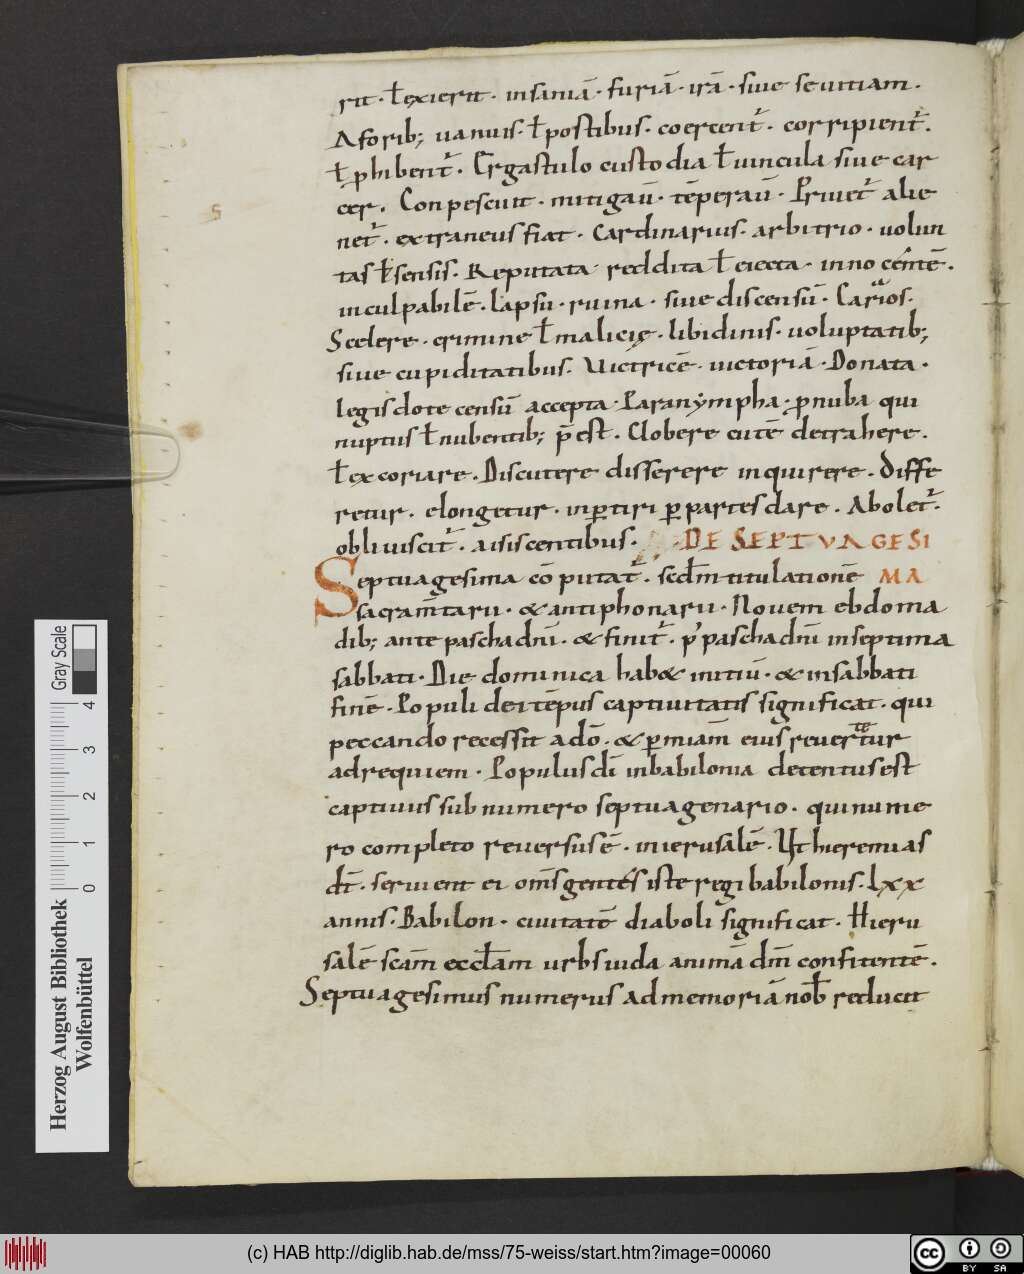 rit · ł exierit · insaniā · furiā · irā · siue seuitiam ·
A forib; uanuis · ł postibus · coercent᷑ · corripient᷑ ·
ł ꝓhibent᷑ · Ergastulo custodia ł uincula siue car
cer · Conpescuit · mitigaū · tēperaū · Priuet᷑ alie
net᷑ · extraneus fiat · Cardinarius · arbitrio · uolun
tas ł sensis · Reputata reddita ł eiecta · innocentē ·
inculpabilē · Lapsu · ruina · siue discensū · Carios ·
Scelere · crimine ł malicię · libidinis · uoluptatib;
siue cupiditatibus · Uictricē · uictoriā · Donata ·
legis dote censū accepta · Paranympha · ꝓnuba qui
nuptus ł nubentib; p̄est · Globere cutē detrahere ·
ł excoriare · Discutere disserere inquirere · Diffe
retur · elongetur · inꝑtiri ꝑ partes dare · Abolet᷑ ·
obliuiscit᷑ · aisiscentibus · DE SEPTVAGESI
Septuagesima cōputat᷑ · scdm̄ titulationē MA
sacram̄tarii · & antiphonarii · Nouem ebdoma
dib; ante pascha dnī · & finit᷑ · p᷑ pascha dnī in septima
sabbati · Die dominica hab& initiū · & in sabbati
finē · Populi dei tēpus captiuitatis significat · qui
peccando recessit a dō · & ꝑ miām eius reuertetur
ad requiem · Populus dī in babilonia detentus est
captiuus sub numero septuagenario · qui nume
ro completo reuersus ē · in ierusalē · Ut hieremias
dt̄ · seruient ei om̄s gentes iste regi babilonis · lxx
annis · Babilon · ciuitatē diaboli significat · Hieru
salē scām eccl̄am urbs uida animā dm̄ confitentē ·
Septuagesimus numerus ad memoriā nob̄ reducit
Gray Scale
4
3
2
1
0
Herzog August Bibliothek
Wolfenbüttel
(c) HAB http://diglib.hab.de/mss/75-weiss/start.htm?image=00060
cc
BY SA